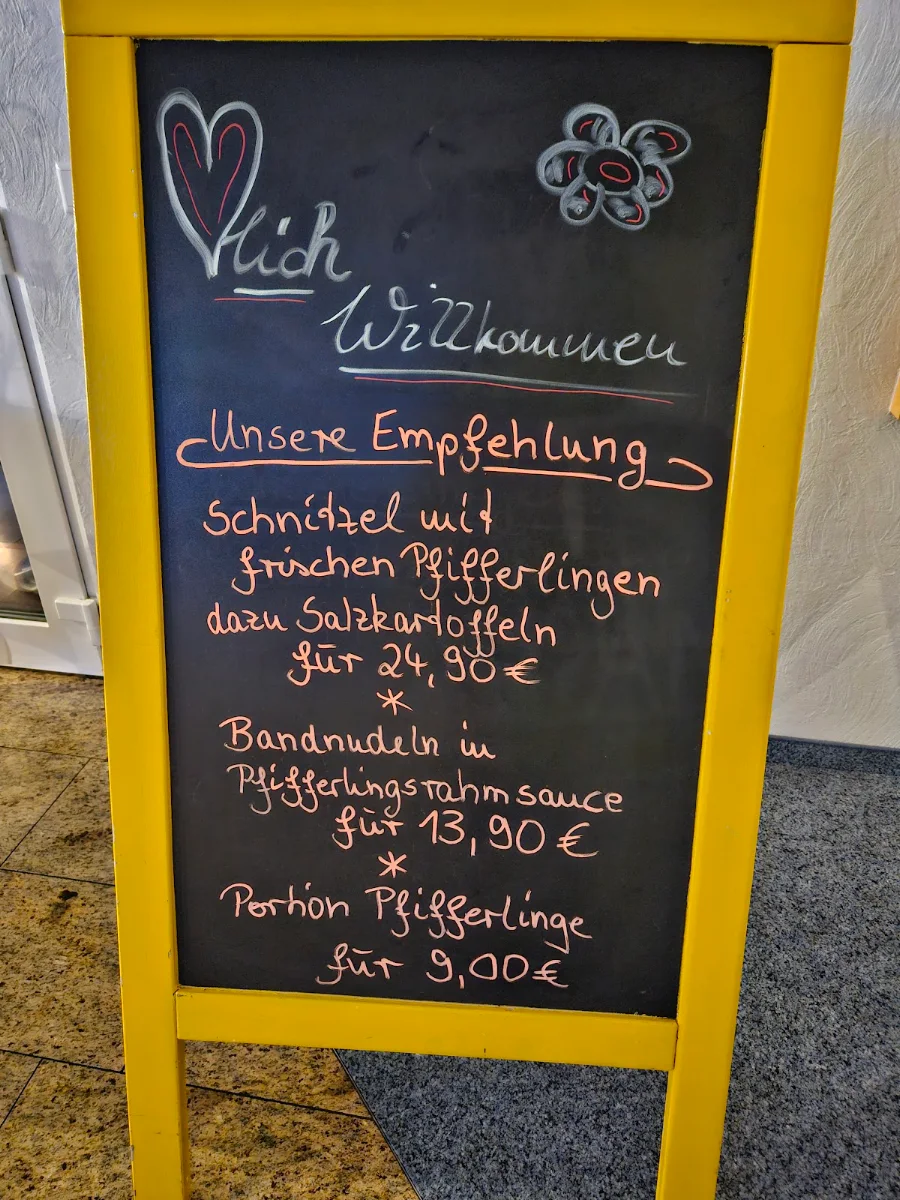 lich
Willkommen
Unsere Empfehlung
Schnitzel mit
frischen Pfifferlingen
dazu Salzkartoffeln
für 24,90 €
*
Bandnudeln in
Pfifferlingsrahmsauce
für 13,90 €
*
Portion Pfifferlinge
für 9,00 €